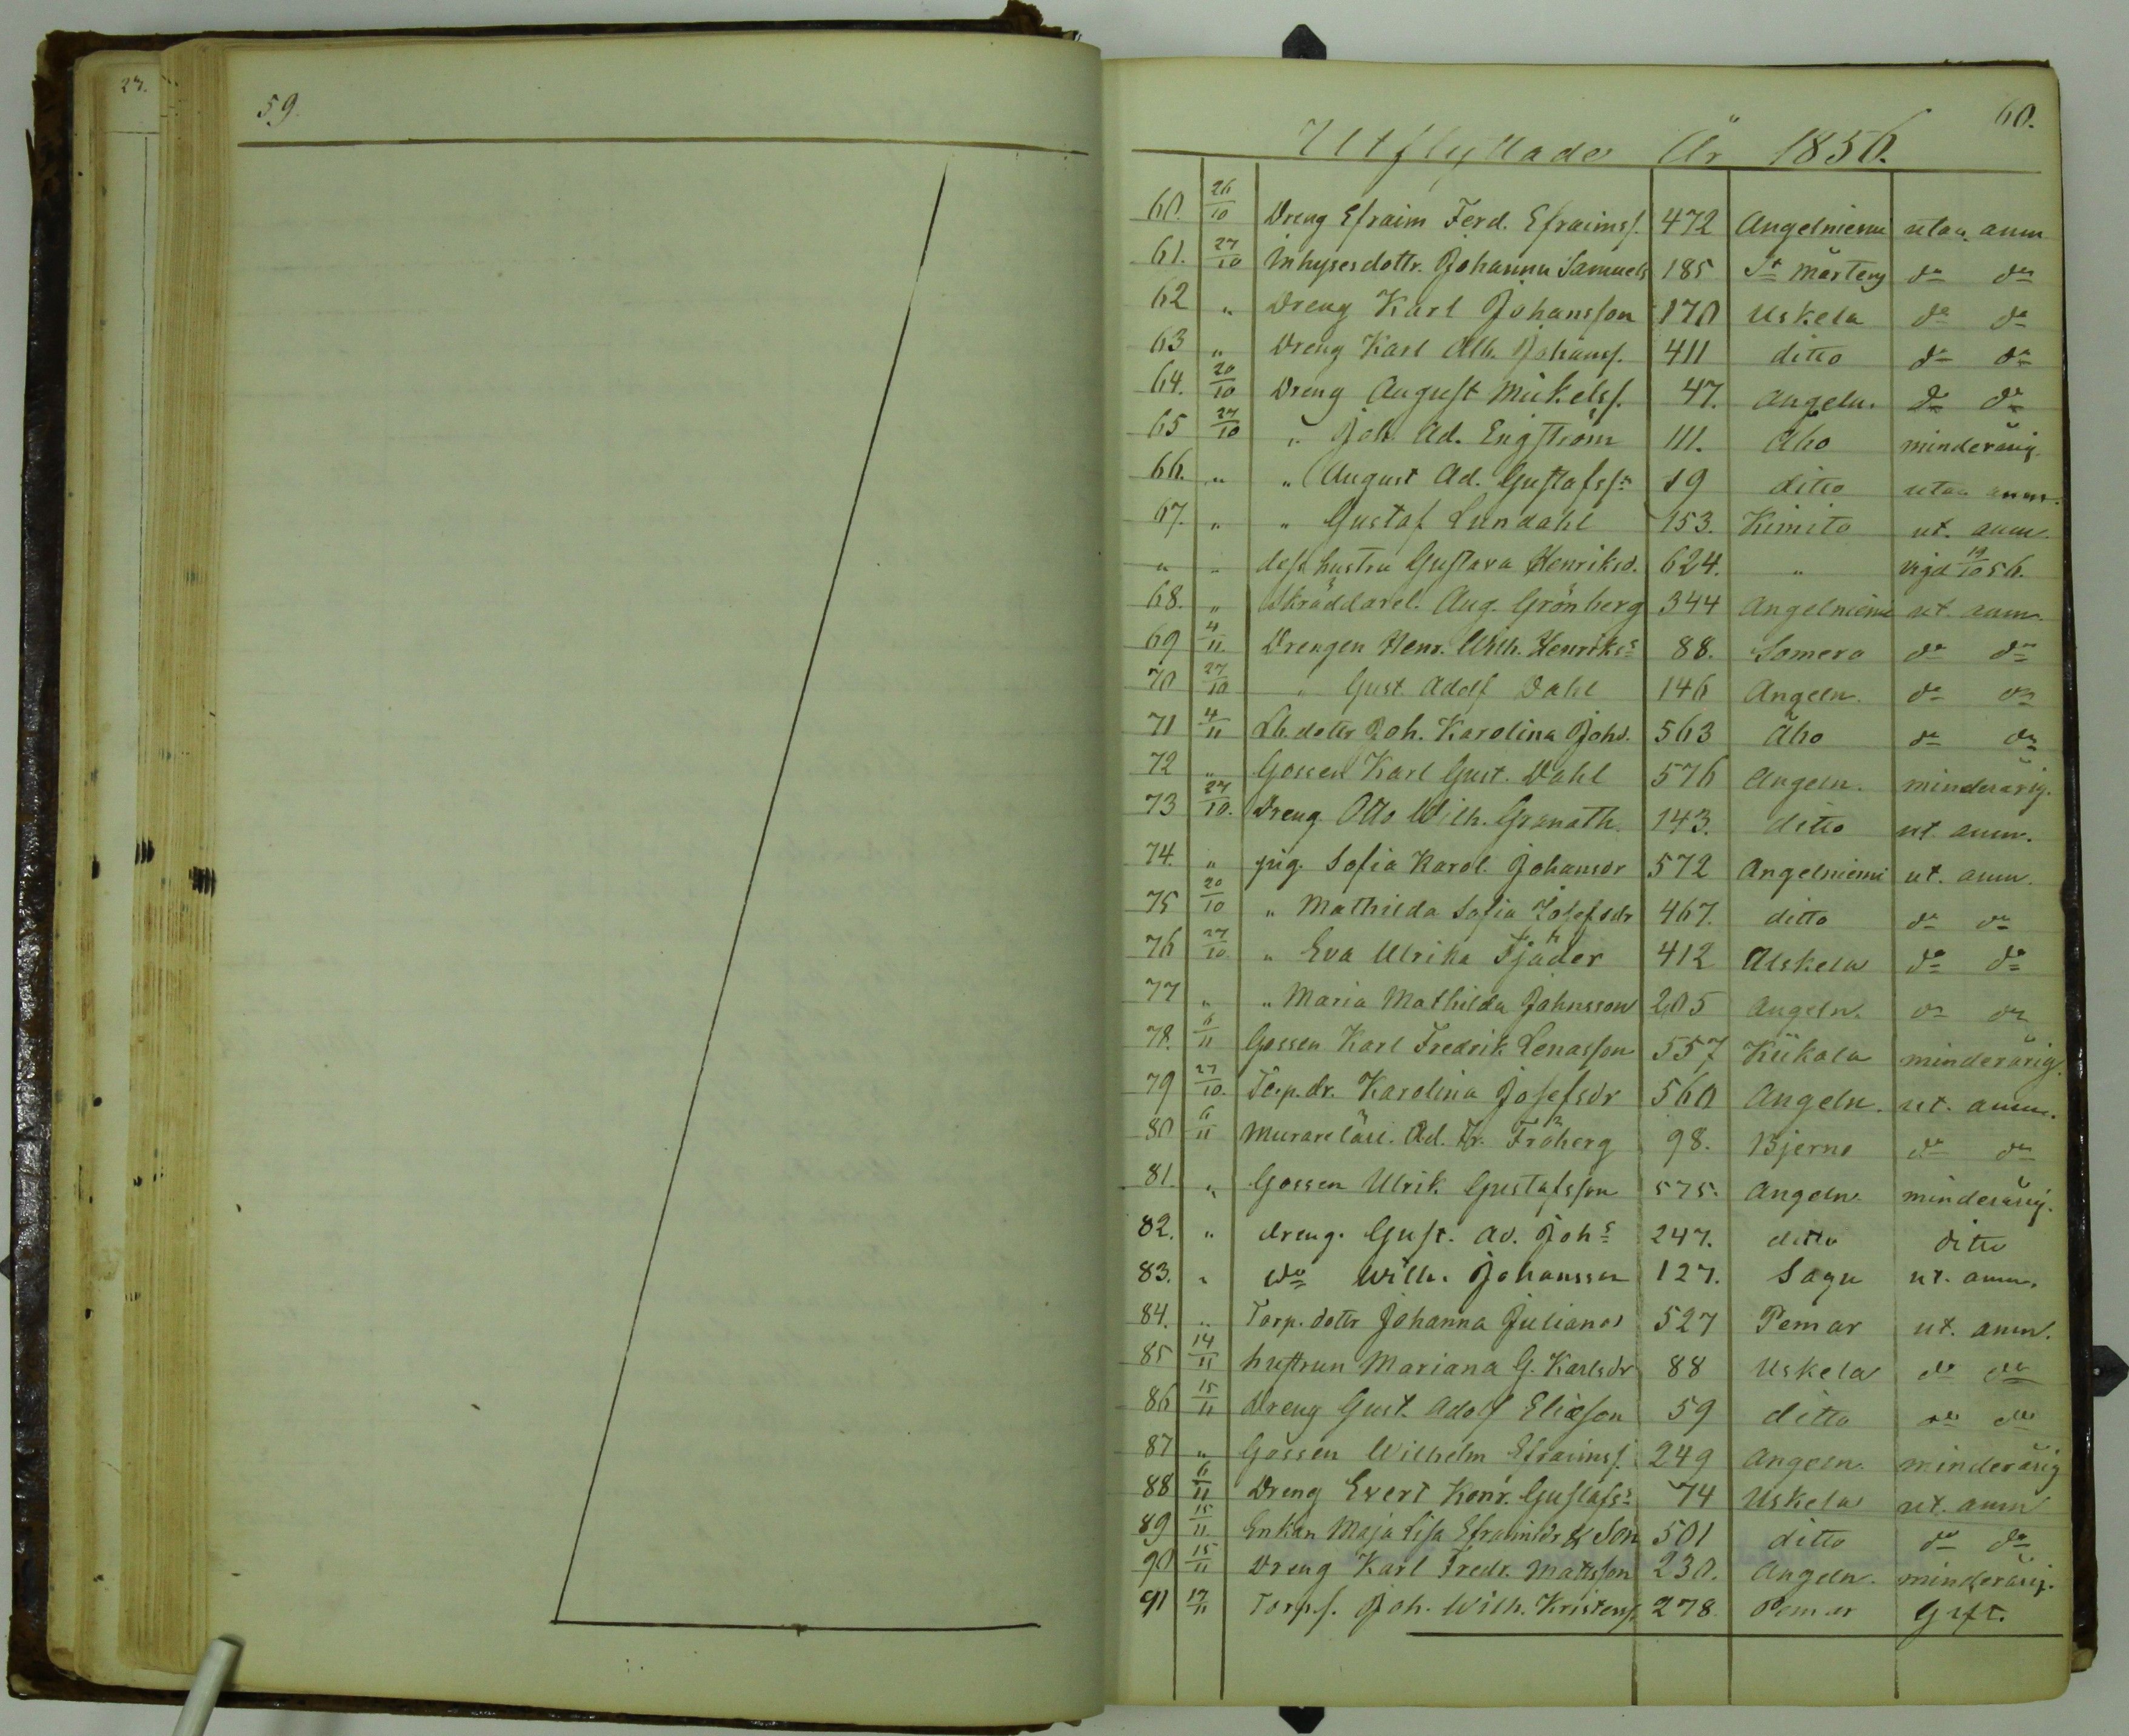 27.
59.
60.
Utflyttade År 1856.
60. 26/10 Dreng Efraim Ferd. Efraimss. 472 Angelniemi utan anm
61. 27/10 Inhysesdottr. Johanna Samuels 185 St Mårtens do do
62 " Dreng Karl Johansson 170 Uskela do do
63 " Dreng Karl Alb. Johanss. 411 ditto do do
64. 20/10 Dreng August Mickelss. 47. Angeln. do do
65 27/10 " Joh. Ad. Engström 111. Åbo minderårig
66. " " August Ad. Gustafssn 19 ditto utan anm.
67. " " Gustaf Lundahl 153. Kimito ut. anm.
" " dess hustru Gustava Henriksd. 624. " vigd 19/10 56.
68. " Skräddarel. Aug. Grönberg 344 Angelniemi ut. anm.
69 4/11. Drengen Henr. Wilh. Henrikss 88. Somero do do
70 27/10 " Gust. Adolf Dahl 146 Angeln. do do
71 4/11 dottr Joh. Karolina Johd. 563 Åbo do do
72 " Gossen Karl Gust. Dahl 576 Angeln. minderårig.
73 27/10. Dreng Otto Wilh. Granath 143. ditto ut anm.
74. " pig. Sofia Karol. Johansdr 572 Angelniemi ut. anm.
75 20/10 " Mathilda Sofia Josefsdr 467. ditto do do
76 27/10 " Eva Ulrika Tjäder 412 Uskela do do
77 " " Maria Mathilda Johnsson 205 Angeln. do do
78. 6/11 Gossen Karl Fredrik Lenasson 557 Kiikala minderårig.
79 27/10. Torp.dr. Karolina Josefsdr 560 Angeln. ut. anm.
80 6/11 Murarelärl. Ad. Fr. Fröberg 98. Bjerno do do
81. " Gossen Ulrik Gustafsson 575. Angeln. minderårig.
82. " dreng. Gust. Ad. Johs 247. ditto ditto
83. " do Wilh. Johansson 127. Sagu ut. anm.
84. " Torp. dottr Johanna Julianad 527 Pemar ut. anm.
85 14/11 hustrun Mariana G. Karlsdr 88 Uskela do do
86 15/11 Dreng Gust. Adolf Eliasson 59 ditto do do
87 " Gossen Wilhelm Efraimss. 249 Angeln. minderårig
88 6/11 Dreng Evert Konr. Gustafss 74 Uskela ut. anm
89 15/11 Enkan Maja Lisa Efraimsdr & Son 501 ditto do do
90 15/11 Dreng Karl Fredr. Mattsson 230. Angeln. minderårig.
91 17/11 Torp.s. Joh. Wilh. Kristerss. 278. Pemar Gift.